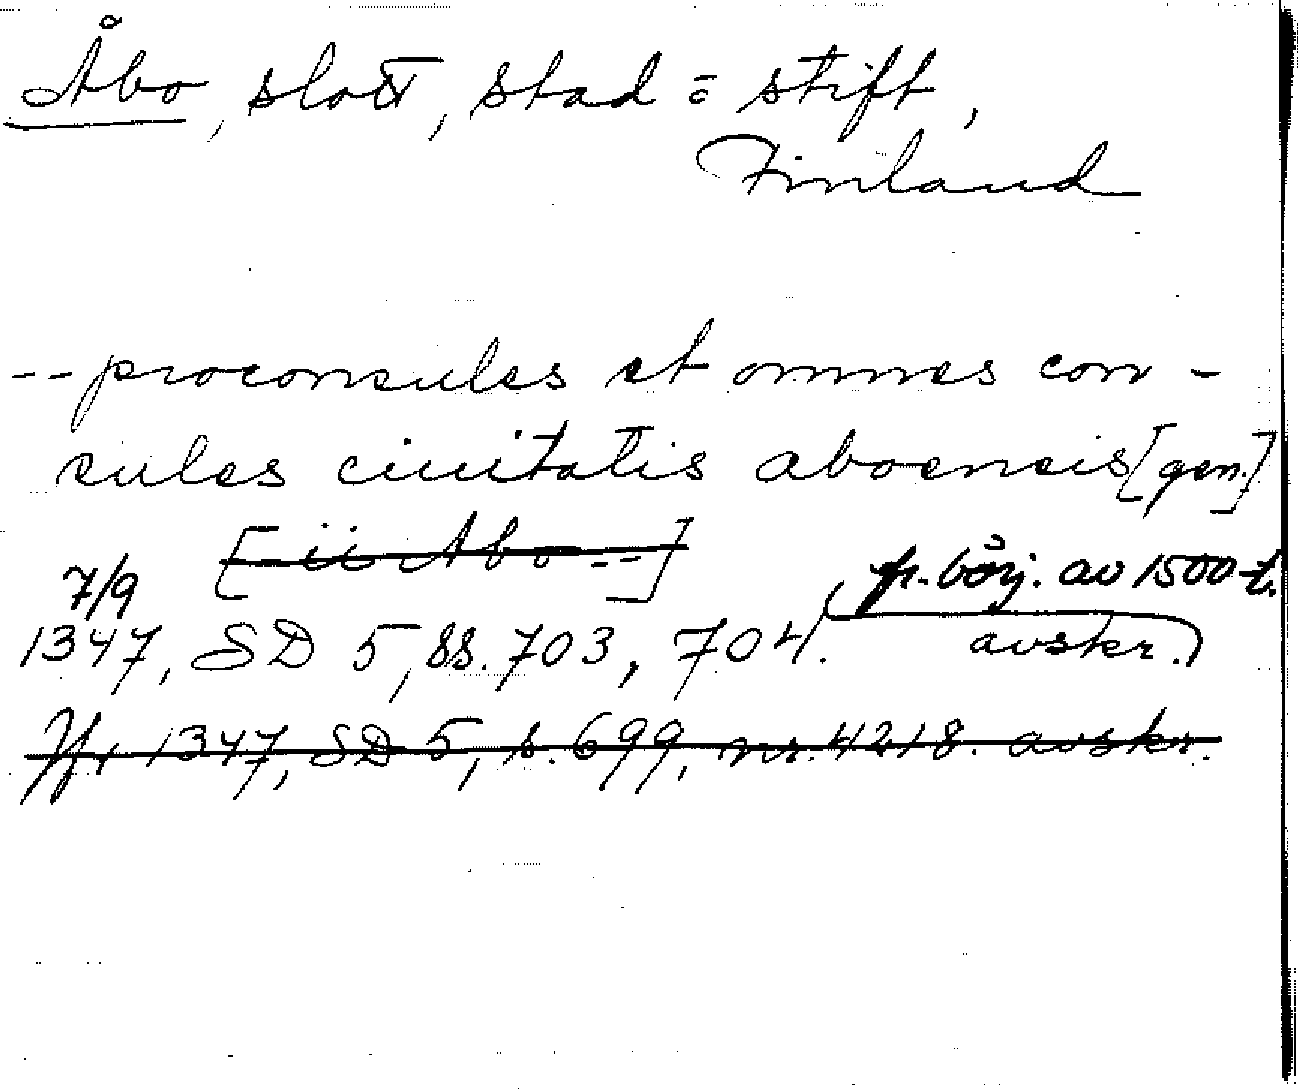 Åbo, slott, stad = stift,
Finland
-- proconsules et omnes con-
sules ciuitatis aboensis [gen.]
[- ii s Abo --]
7/9 fr. börj. av 1500-t.
1347, SD 5, ss. 703, 704. ( avskr.)
Jfr 1347, SD 5, s. 699, nr. 4218. avskr.